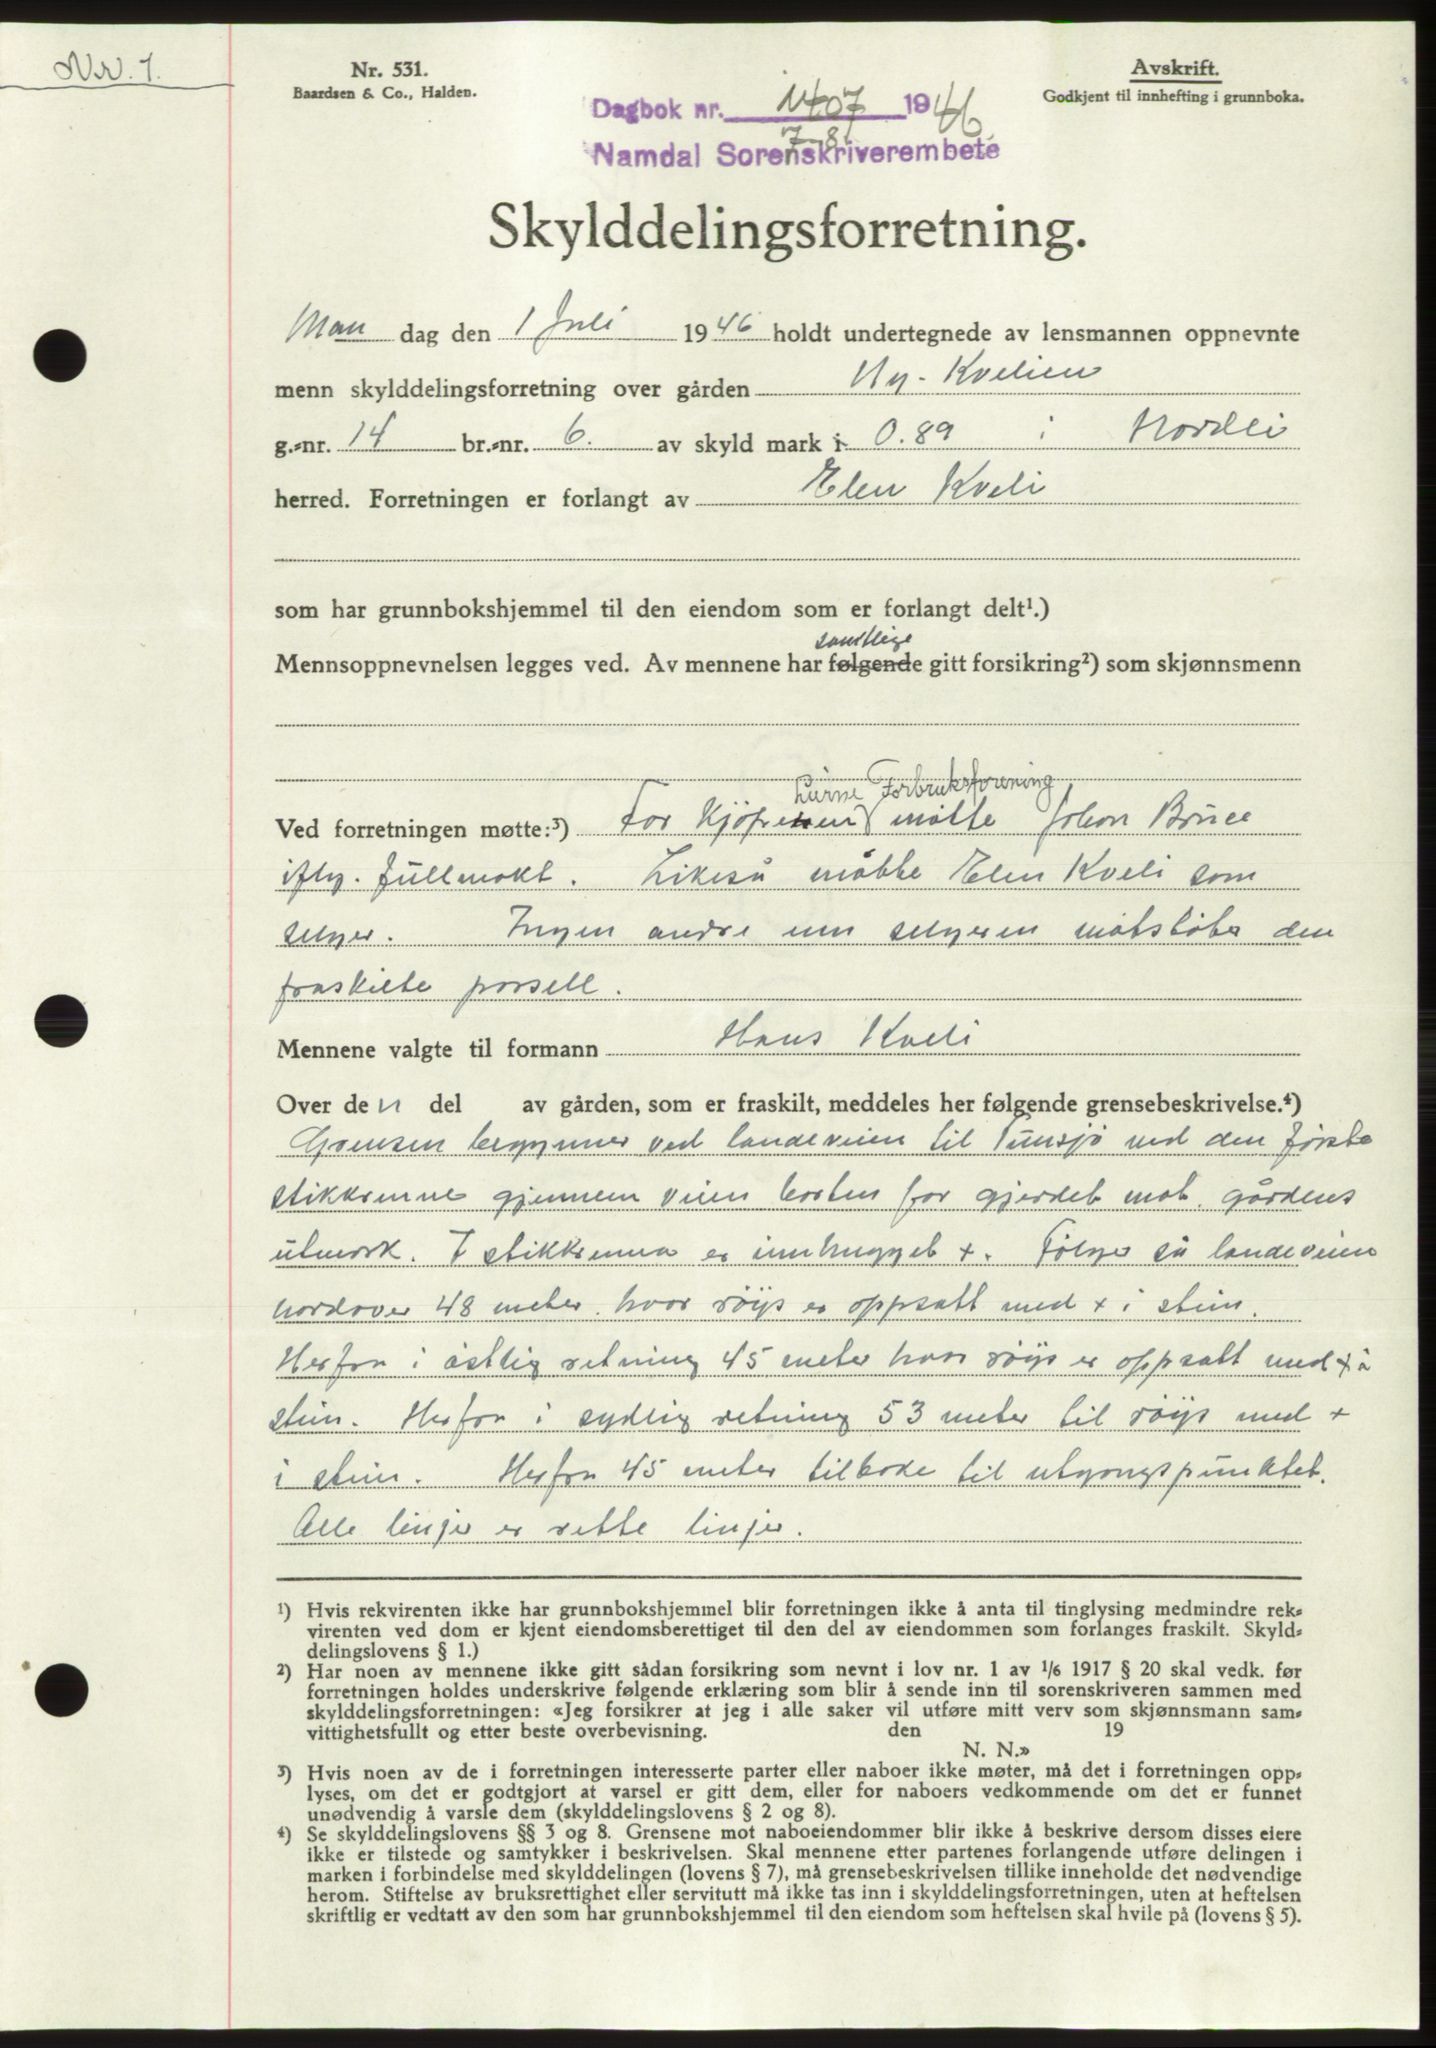 Nr. 1.
Nr. 531.
Baardsen & Co., Halden.
Avskrift.
Godkjent til innhefting i grunnboka.
Dagbok nr. 1407 1946
7-8
Namdal Sorenskriverembete
Skylddelingsforretning.
Man dag den 1 Juli 1946 holdt undertegnede av lensmannen oppnevnte
menn skylddelingsforretning over gården Ny-Kvelien
g.-nr. 14 br.-nr. 6. av skyld mark i 0.89 i Nordli
herred. Forretningen er forlangt av Elen Kveli
som har grunnbokshjemmel til den eiendom som er forlangt delt¹.)
samtlige
Mennsoppnevnelsen legges ved. Av mennene har følgende gitt forsikring²) som skjønnsmenn
Lierne Forbruksforening
Ved forretningen møtte:³) For kjöperen møtte Johan Bruce
ifly. fullmakt. Likeså møtte Elen Kveli som
selger. Ingen andre enn selgeren motstöter den
fraskilte parsell.
Mennene valgte til formann Hans Kveli
Over den del av gården, som er fraskilt, meddeles her følgende grensebeskrivelse.⁴)
Grensen begynner ved landeveien til Tunsjö ved den förste
stikkrenne gjennem veien borten for gjerdet mot gårdens
utmark. I stikkrenna er innhugget +. Fölger så landeveien
nordover 48 meter hvor röys er oppsatt med + i stein.
Herfra i östlig retning 45 meter hvor röys er oppsatt med + i
stein. Herfra i sydlig retning 53 meter til röys med +
i stein. Herfra 45 meter tilbake til utgangspunktet.
Alle linjer er rette linjer.
¹) Hvis rekvirenten ikke har grunnbokshjemmel blir forretningen ikke å anta til tinglysing medmindre rek-
virenten ved dom er kjent eiendomsberettiget til den del av eiendommen som forlanges fraskilt. Skyld-
delingslovens § 1.)
²) Har noen av mennene ikke gitt sådan forsikring som nevnt i lov nr. 1 av 1/6 1917 § 20 skal vedk. før
forretningen holdes underskrive følgende erklæring som blir å sende inn til sorenskriveren sammen med
skylddelingsforretningen: «Jeg forsikrer at jeg i alle saker vil utføre mitt verv som skjønnsmann sam-
vittighetsfullt og etter beste overbevisning. den 19
N. N.»
³) Hvis noen av de i forretningen interesserte parter eller naboer ikke møter, må det i forretningen opp-
lyses, om det er godtgjort at varsel er gitt dem, eller for naboers vedkommende om det er funnet
unødvendig å varsle dem (skylddelingslovens § 2 og 8).
⁴) Se skylddelingslovens §§ 3 og 8. Grensene mot naboeiendommer blir ikke å beskrive dersom disses eiere
ikke er tilstede og samtykker i beskrivelsen. Skal mennene etter partenes forlangende utføre delingen i
marken i forbindelse med skylddelingen (lovens § 7), må grensebeskrivelsen tillike inneholde det nødvendige
herom. Stiftelse av bruksrettighet eller servitutt må ikke tas inn i skylddelingsforretningen, uten at heftelsen
skriftlig er vedtatt av den som har grunnbokshjemmel til den eiendom som heftelsen skal hvile på (lovens § 5).